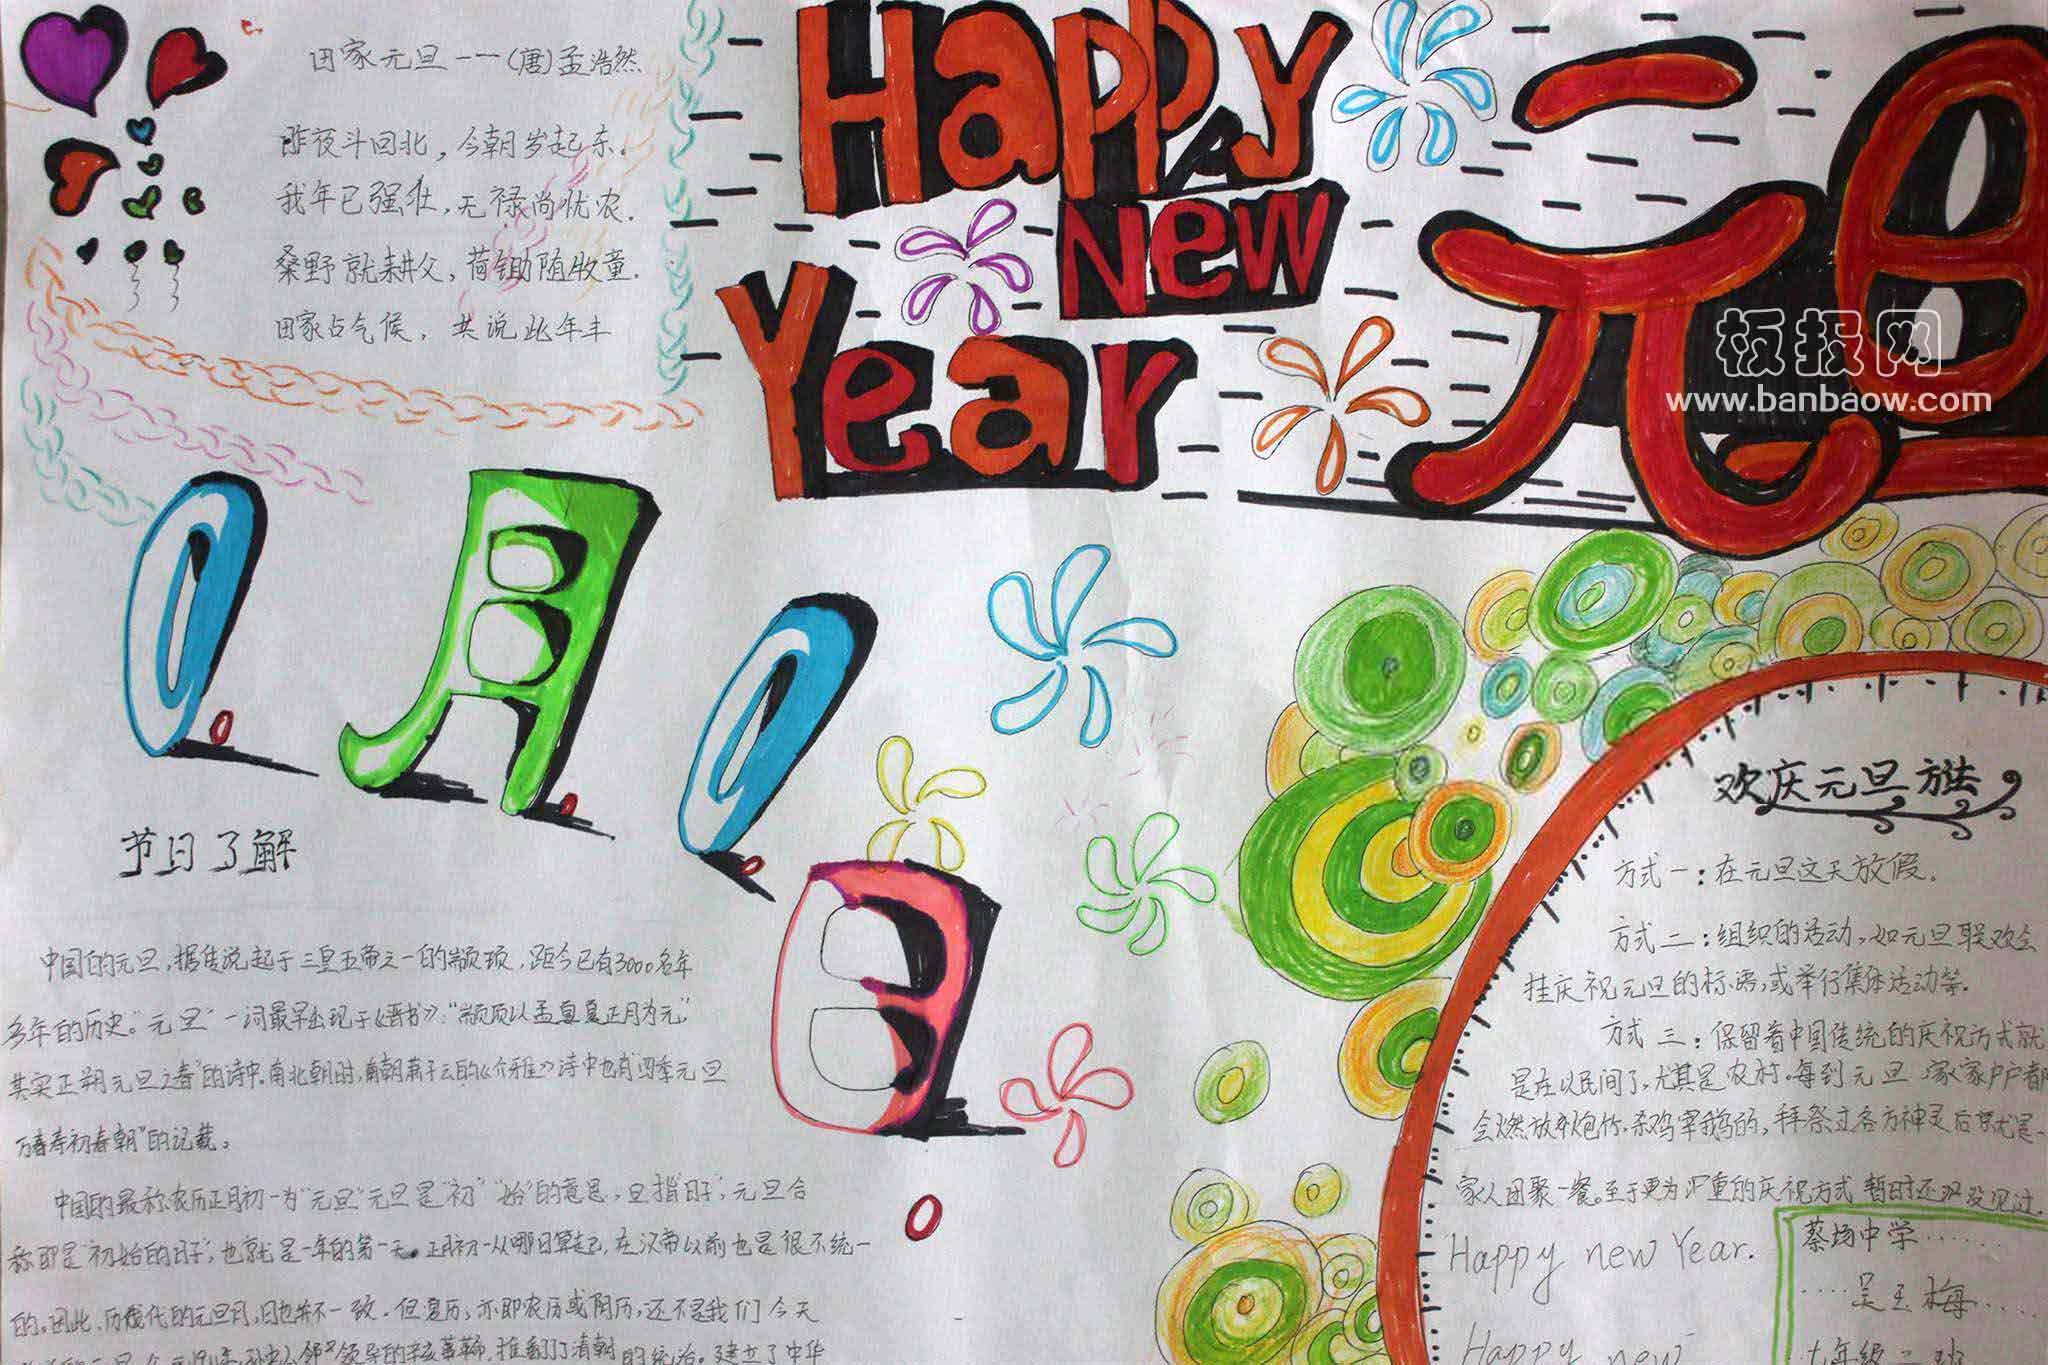 田家元旦——(唐)孟浩然
昨夜斗回北，今朝岁起东。
我年已强壮，无禄尚忧农．
桑野就耕父，荷锄随牧童．
田家占气候，共说此年丰
Happy
New
Year
元旦
板报网
www.banbaow.com
月
日
节日了解
中国的元旦，据传说起于三皇五帝之一的颛顼，距今已有3000多年
多年的历史。"元旦"一词最早出现于《晋书》："颛顼以孟夏正月为元"，
其实正朔元旦之春"的诗中。南北朝时，南朝萧子云的《介雅》诗中也有"四季元旦
万春寿初春朝"的记载。
中国的最称农历正月初一为"元旦"元旦是"初""始"的意思，旦指"日子"，元旦合
称即是"初始的日子"，也就是一年的第一天。正月初一从哪日算起，在汉帝以前也是很不统一
的。因此，历代的元旦月，日也并不一致．但夏历，亦即农历或阴历，还不是我们今天
领导的辛亥革命，推翻了清朝的统治。建立了中华
欢庆元旦方法
方式一：在元旦这天放假．
方式二：组织的活动，如元旦联欢会
挂庆祝元旦的标语，或举行集体活动等．
方式三：保留着中国传统的庆祝方式就
是在以民间了，尤其是农村。每到元旦，家家户户都
会燃放炮竹．杀鸡宰鹅的，拜祭过各方神灵后就是一
家人团聚一餐。至于更为严重的庆祝方式暂时还没见过．
Happy new Year.
蔡场中学……
……吴玉梅……
Happy new